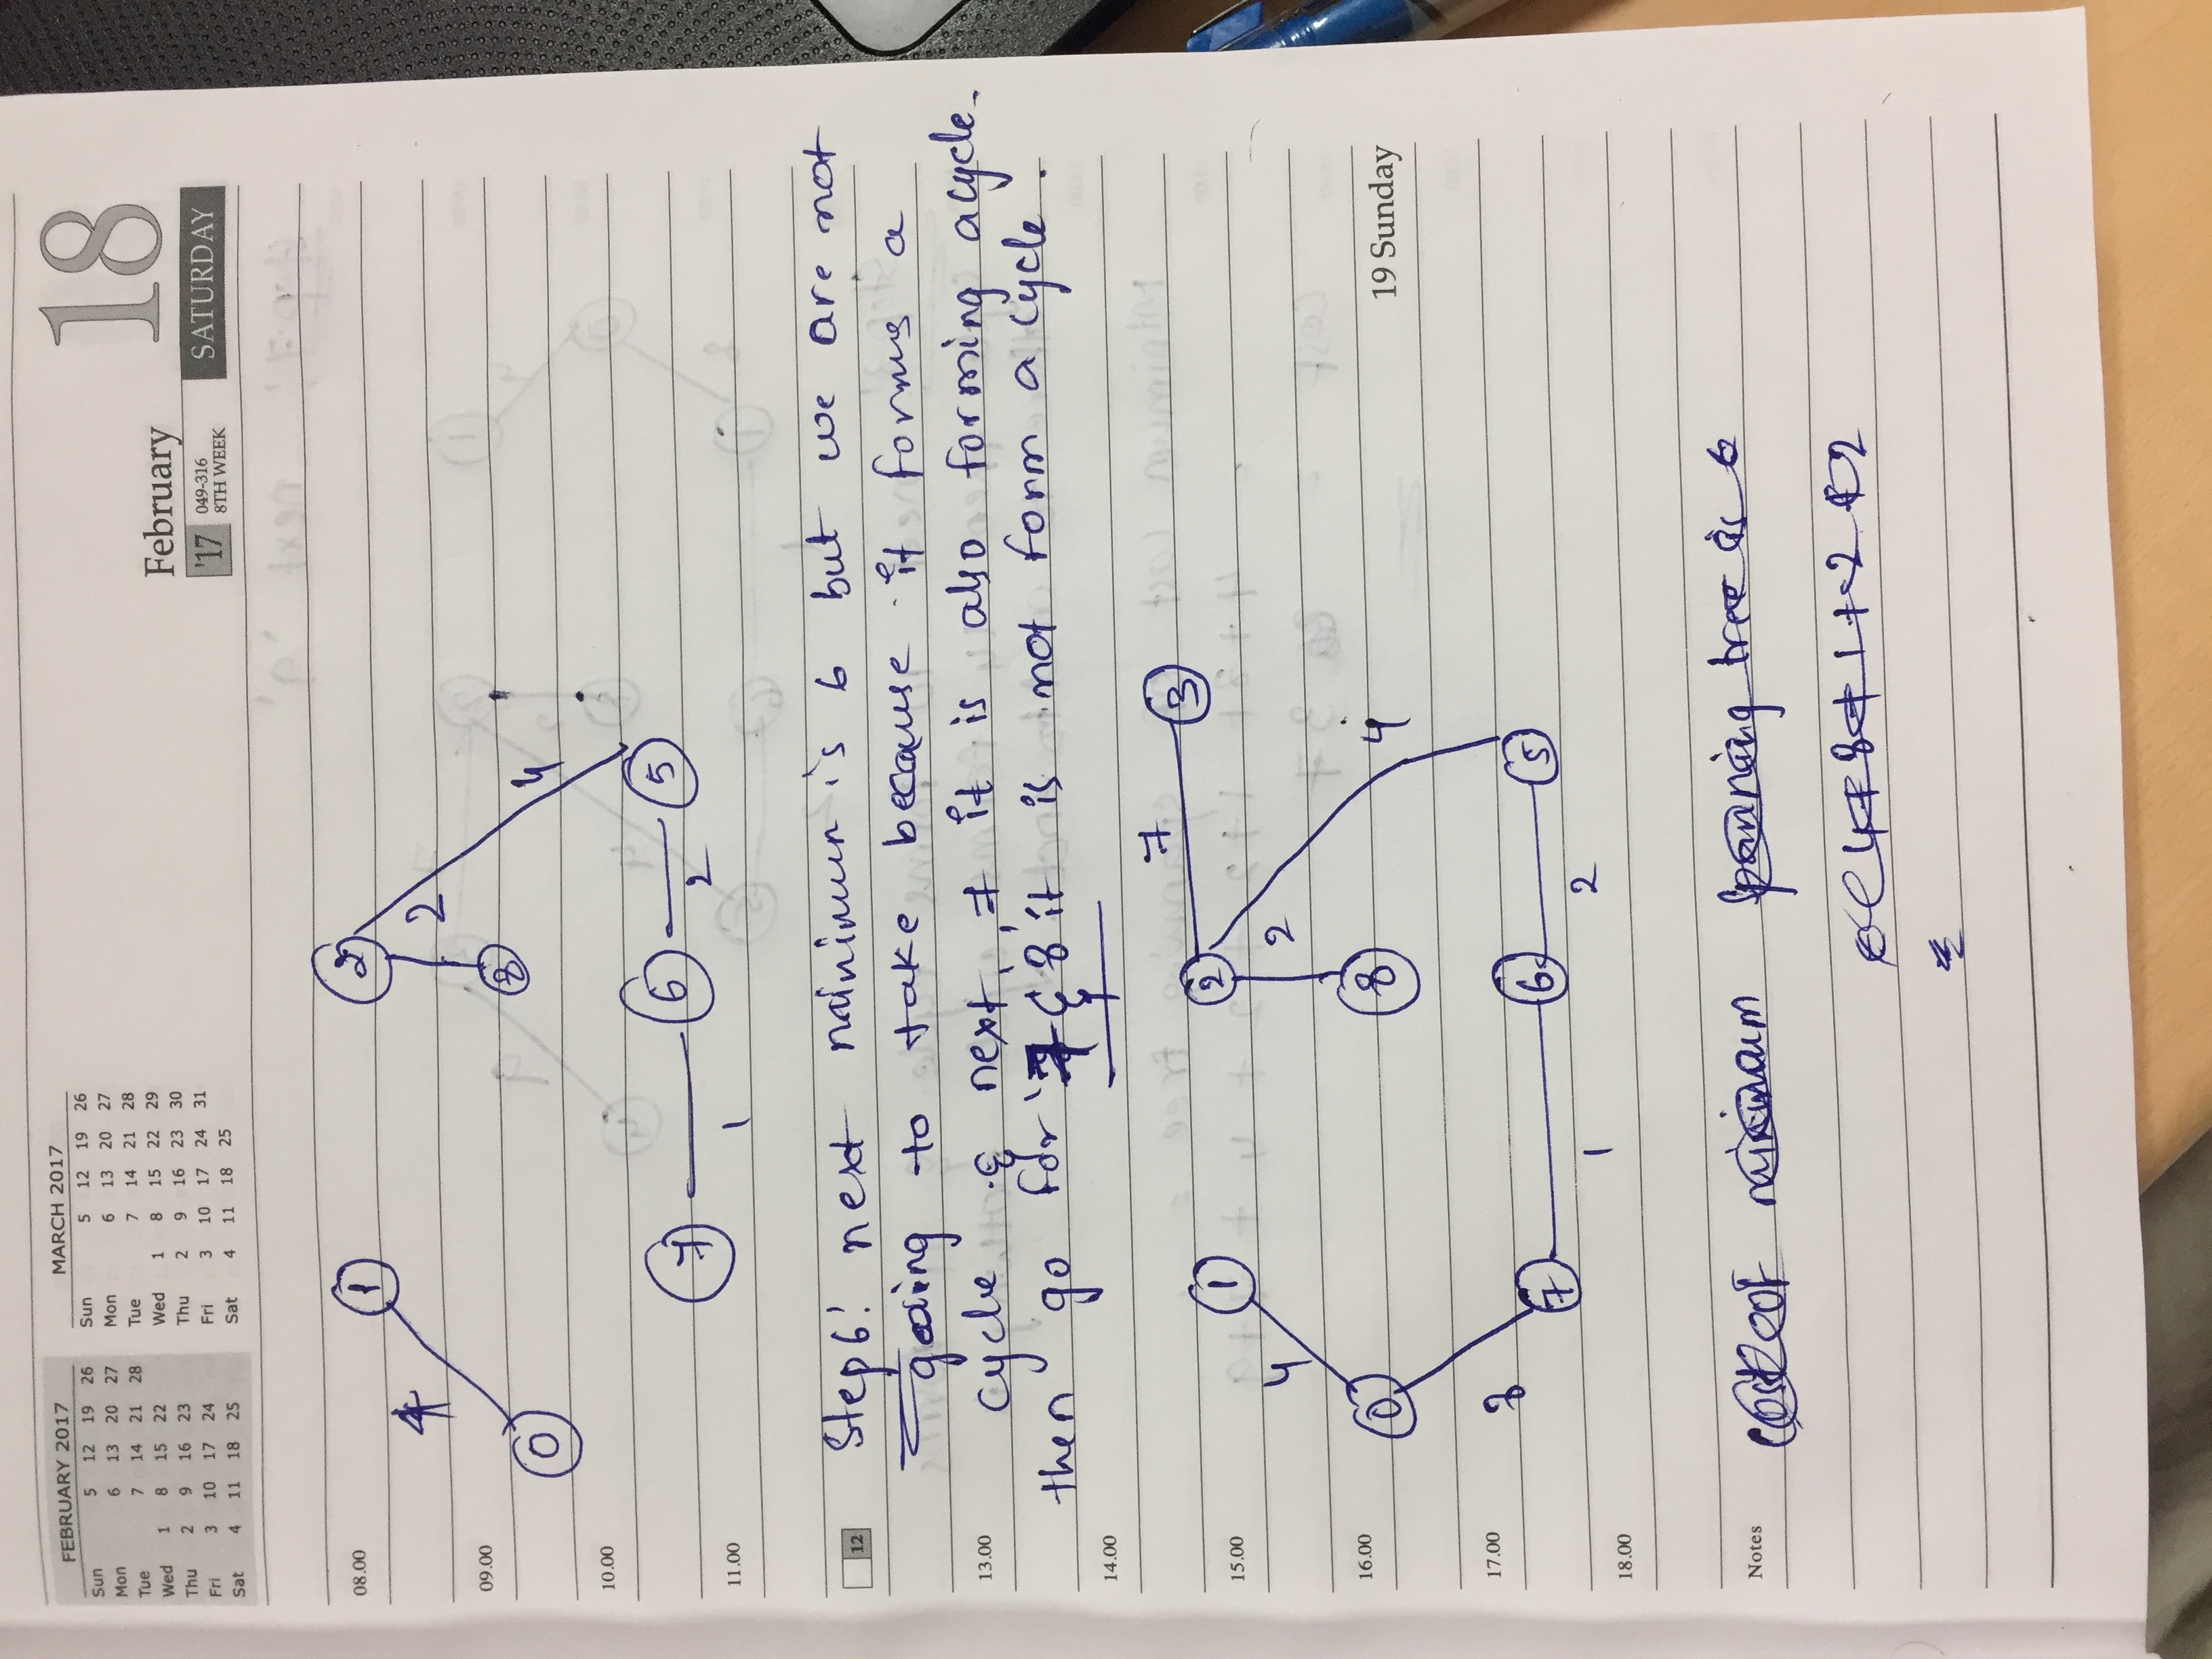 FEBRUARY 2017
Sun 5 12 19 26
Mon 6 13 20 27
Tue 7 14 21 28
Wed 1 8 15 22
Thu 2 9 16 23
Fri 3 10 17 24
Sat 4 11 18 25
MARCH 2017
Sun 5 12 19 26
Mon 6 13 20 27
Tue 7 14 21 28
Wed 1 8 15 22 29
Thu 2 9 16 23 30
Fri 3 10 17 24 31
Sat 4 11 18 25
18
February
'17 049-316
8TH WEEK
SATURDAY
08.00
1 2
4 2
09.00
8
0 4
10.00
7 6 5
1 2
11.00
12
Step 6: next minimum is 6 but we are not
going to take because it forms a
cycle & next, 7 it is also forming a cycle.
13.00
then go for 7 & 8 it is not form a cycle.
14.00
7
2 3
1
15.00
4 2
16.00
0 8 4
19 Sunday
17.00
8
7 6 5
1 2
18.00
Notes
cost of minimum spanning tree is 6
4+8+1+2+2